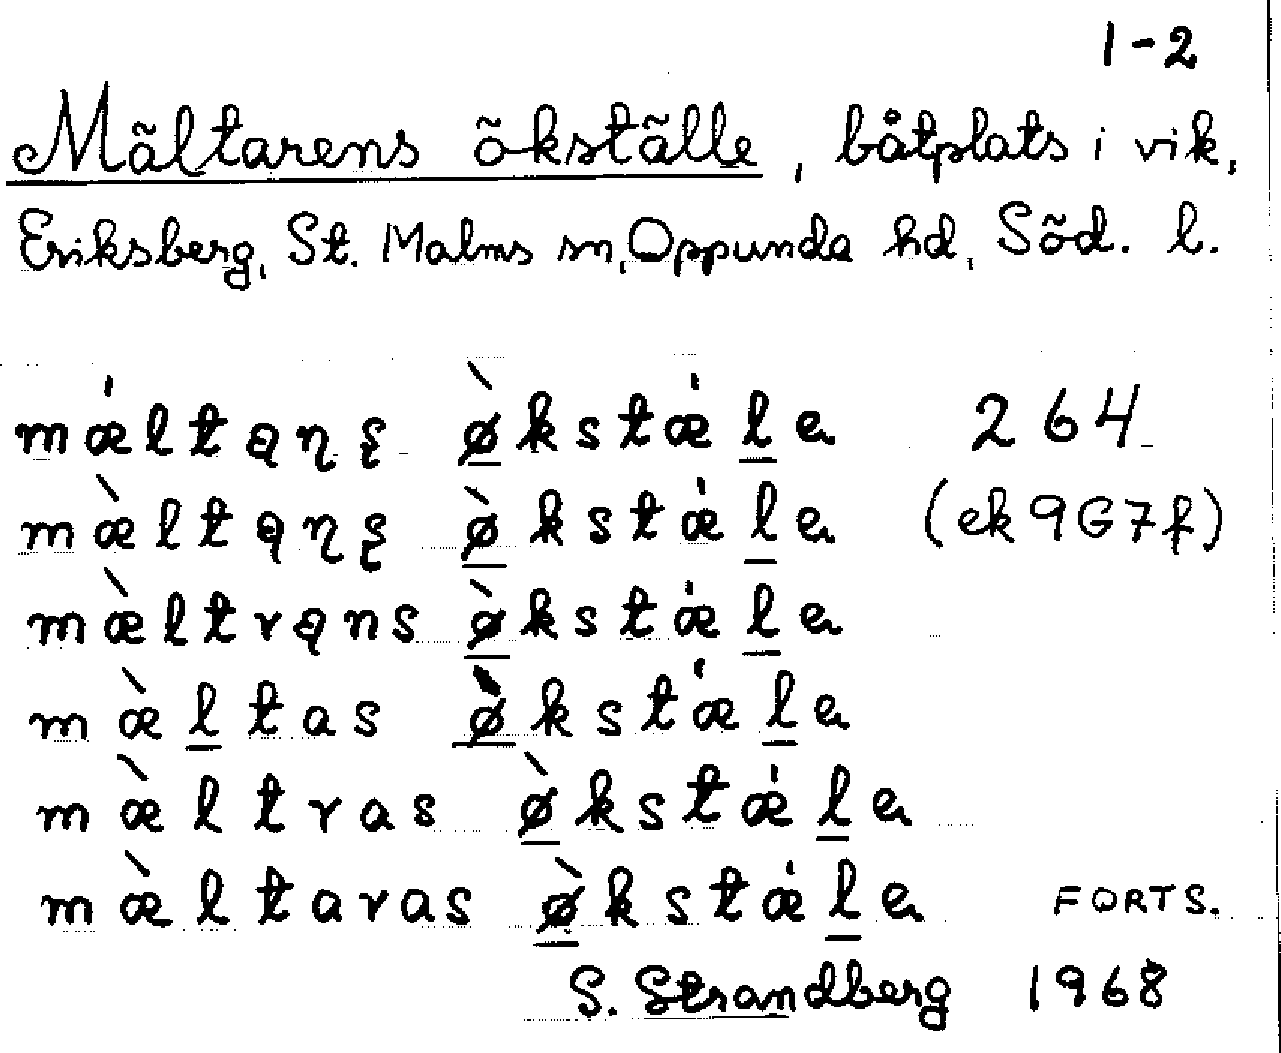 1-2
Mältarens ökställe, båtplats i vik,
Eriksberg, St. Malms sn, Oppunda hd, Söd. l.
mæ̍ltąɳʂ ø̲̀kstæ̍l̲ə 264
mæ̀ltąɳʂ ø̲̀kstæ̍l̲ə (ek 9G7f)
mæ̀ltrąns ø̲̀kstæ̍l̲ə
mæ̀l̲tas ø̲̀kstæ̍l̲ə
mæ̀ltras ø̲̀kstæ̍l̲ə
mæ̀ltaras ø̲̀kstæ̍l̲ə FORTS.
S. Strandberg 1968